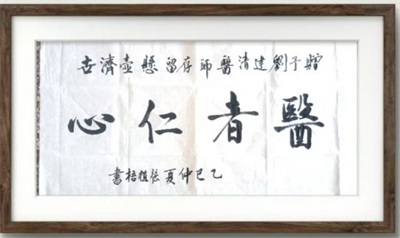 贈予劉建清醫師存留懸壺濟世
醫者仁心
乙巳仲夏張植梧書